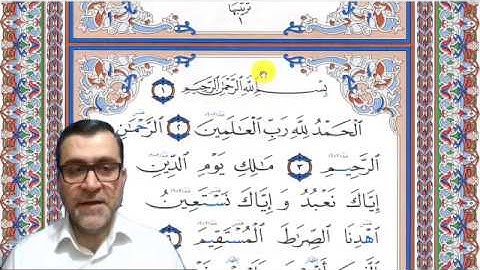 ترتيبها
١
بِسْمِ اللَّهِ الرَّحْمَٰنِ الرَّحِيمِ ١
الْحَمْدُ لِلَّهِ رَبِّ الْعَالَمِينَ ٢ الرَّحْمَٰنِ
الرَّحِيمِ ٣ مَالِكِ يَوْمِ الدِّينِ
إِيَّاكَ نَعْبُدُ وَ إِيَّاكَ نَسْتَعِينُ
اهْدِنَا الصِّرَاطَ الْمُسْتَقِيمَ ٦